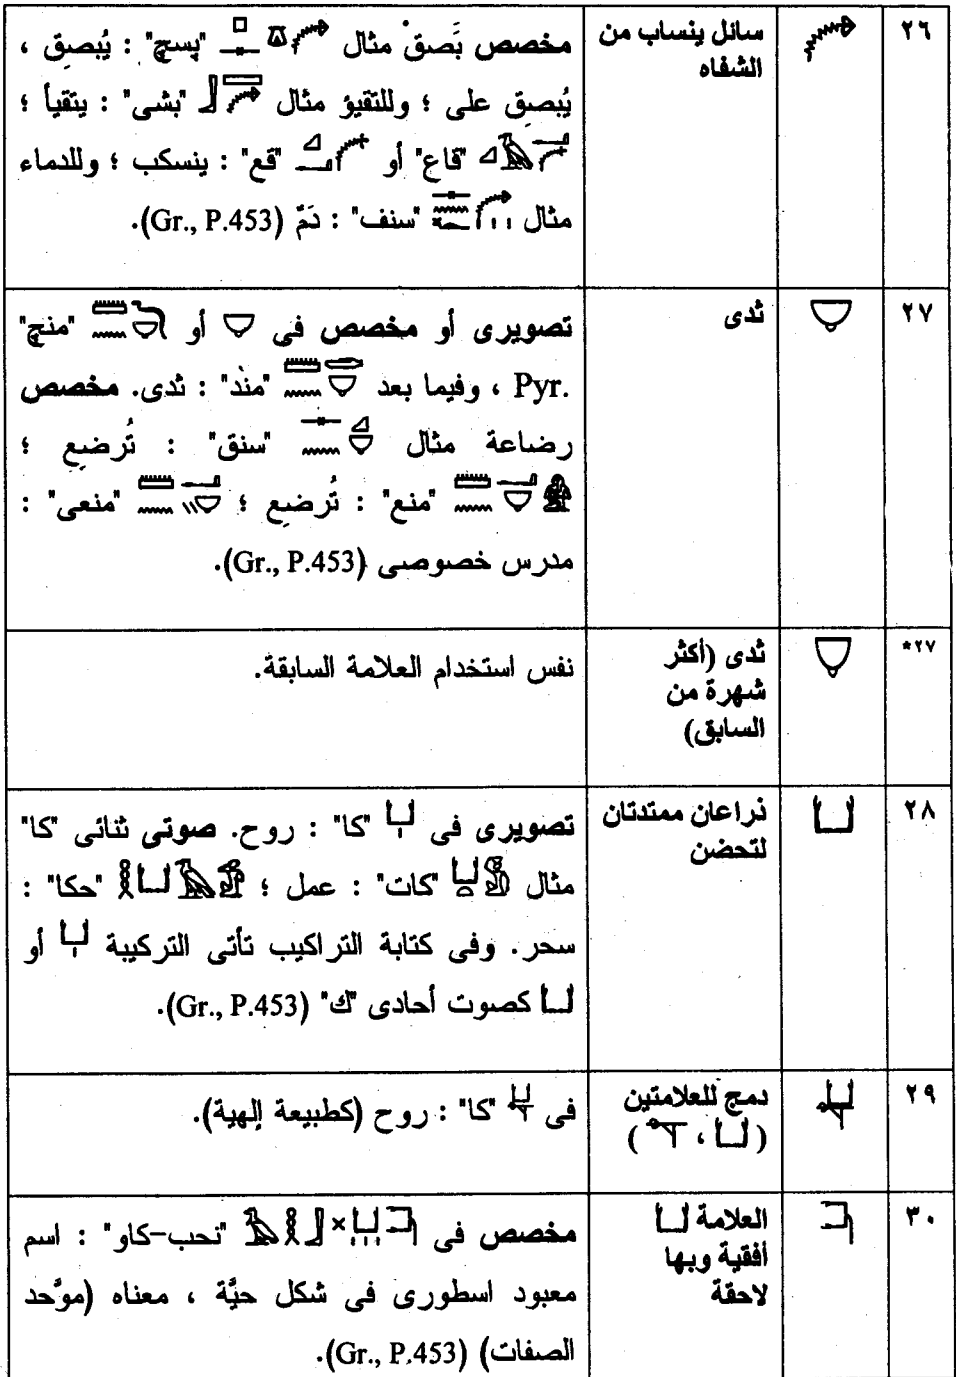 ٢٦
سائل ينساب من
الشفاه
مخصص بَصقْ مثال "پسچ" : يُبصق ،
يُبصق على ؛ وللتقيؤ مثال "بشى" : يتقيأ ؛
"قاع" أو "قع" : ينسكب ؛ وللدماء
مثال "سنف" : دَمّ (Gr., P.453).
٢٧
ثدى
تصويرى أو مخصص فى أو "منچ"
Pyr. ، وفيما بعد "مند" : ثدى. مخصص
رضاعة مثال "سنق" : تُرضع ؛
"منع" : تُرضع ؛ "منعى" :
مدرس خصوصى (Gr., P.453).
*٢٧
ثدى (أكثر
شهرة من
السابق)
نفس استخدام العلامة السابقة.
٢٨
ذراعان ممتدتان
لتحضن
تصويرى فى "كا" : روح. صوتى ثنائى "كا"
مثال "كات" : عمل ؛ "حكا" :
سحر. وفى كتابة التراكيب تأتى التركيبة أو
كصوت أحادى "ك" (Gr., P.453).
٢٩
دمج للعلامتين
( ، )
فى "كا" : روح (كطبيعة إلهية).
٣٠
العلامة
أفقية وبها
لاحقة
مخصص فى "نحب-كاو" : اسم
معبود اسطورى فى شكل حيَّة ، معناه (موَّحد
الصفات) (Gr., P.453).